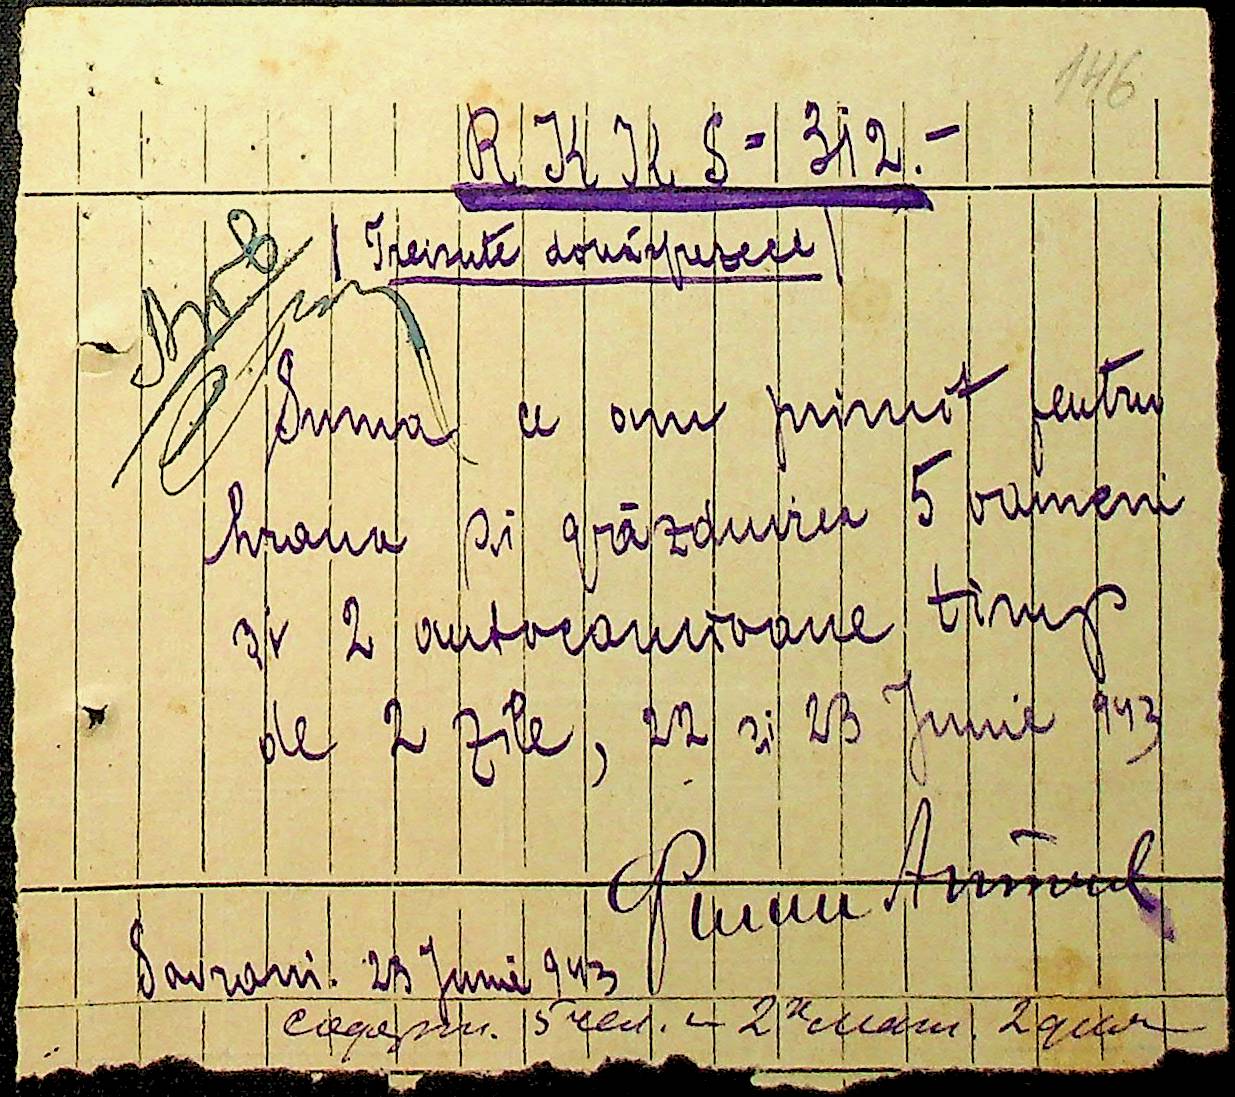 146
R K K S = 312.-
(Treisute douăsprezece)
Suma ce am primit pentru
hrana si găzduirea 5 oameni
si 2 autocamioane timp
de 2 zile, 22 si 23 Junie 943
Savrani. 23 Junie 943
содерж. 5 чел. и 2х маш. 2 дня